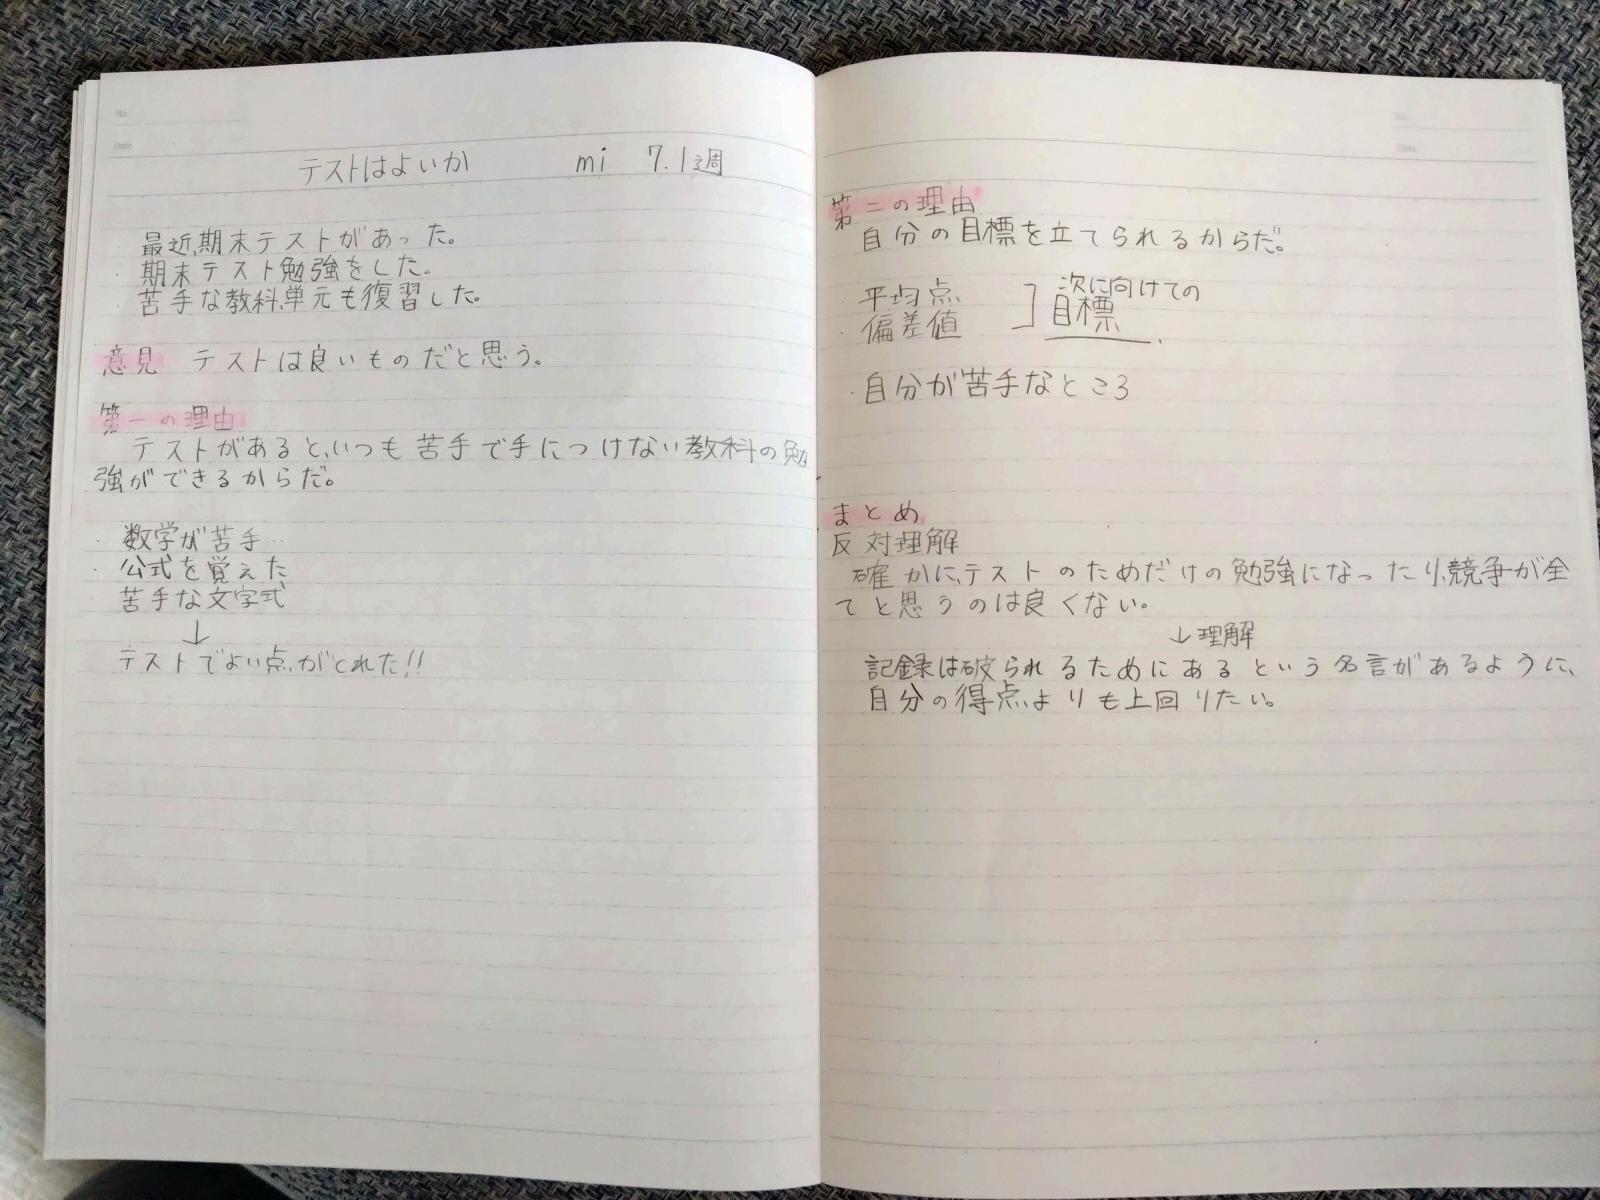 No.
Date
テストはよいか mi 7.1週
最近、期末テストがあった。
・期末テスト勉強をした。
・苦手な教科、単元も復習した。
意見 テストは良いものだと思う。
第一の理由
テストがあると、いつも苦手で手につけない教科の勉
強ができるからだ。
・数学が苦手…
・公式を覚えた
・苦手な文字式
↓
テストでよい点がとれた!!
No.
Date
第二の理由
自分の目標を立てられるからだ。
・平均点
・偏差値
次に向けての
目標
・自分が苦手なところ
まとめ
反対理解
確かに、テストのためだけの勉強になったり、競争が全
てと思うのは良くない。
↓理解
記録は破られるためにあるという名言があるように、
自分の得点よりも上回りたい。